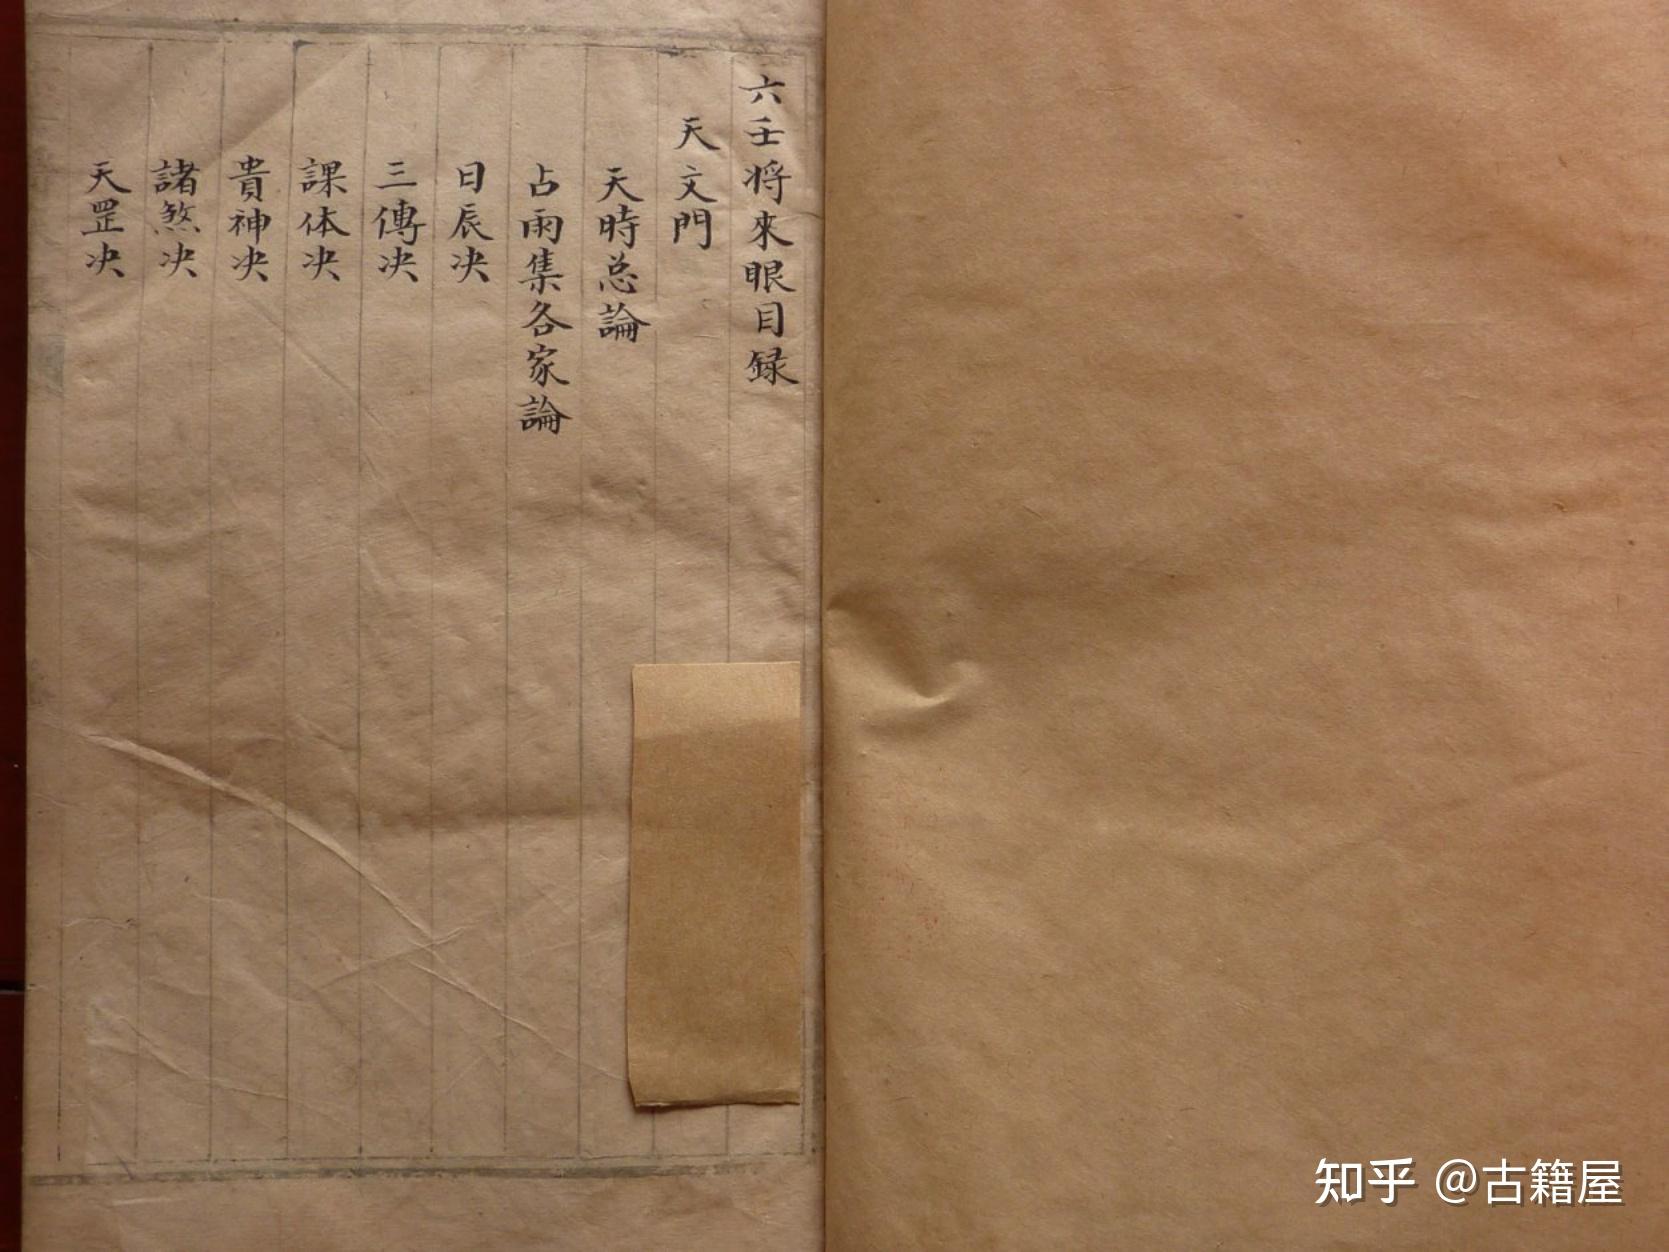 六壬将來眼目録
天文門
天時总論
占雨集各家論
日辰决
三傳决
課体决
貴神决
諸煞决
天罡决
知乎 @古籍屋